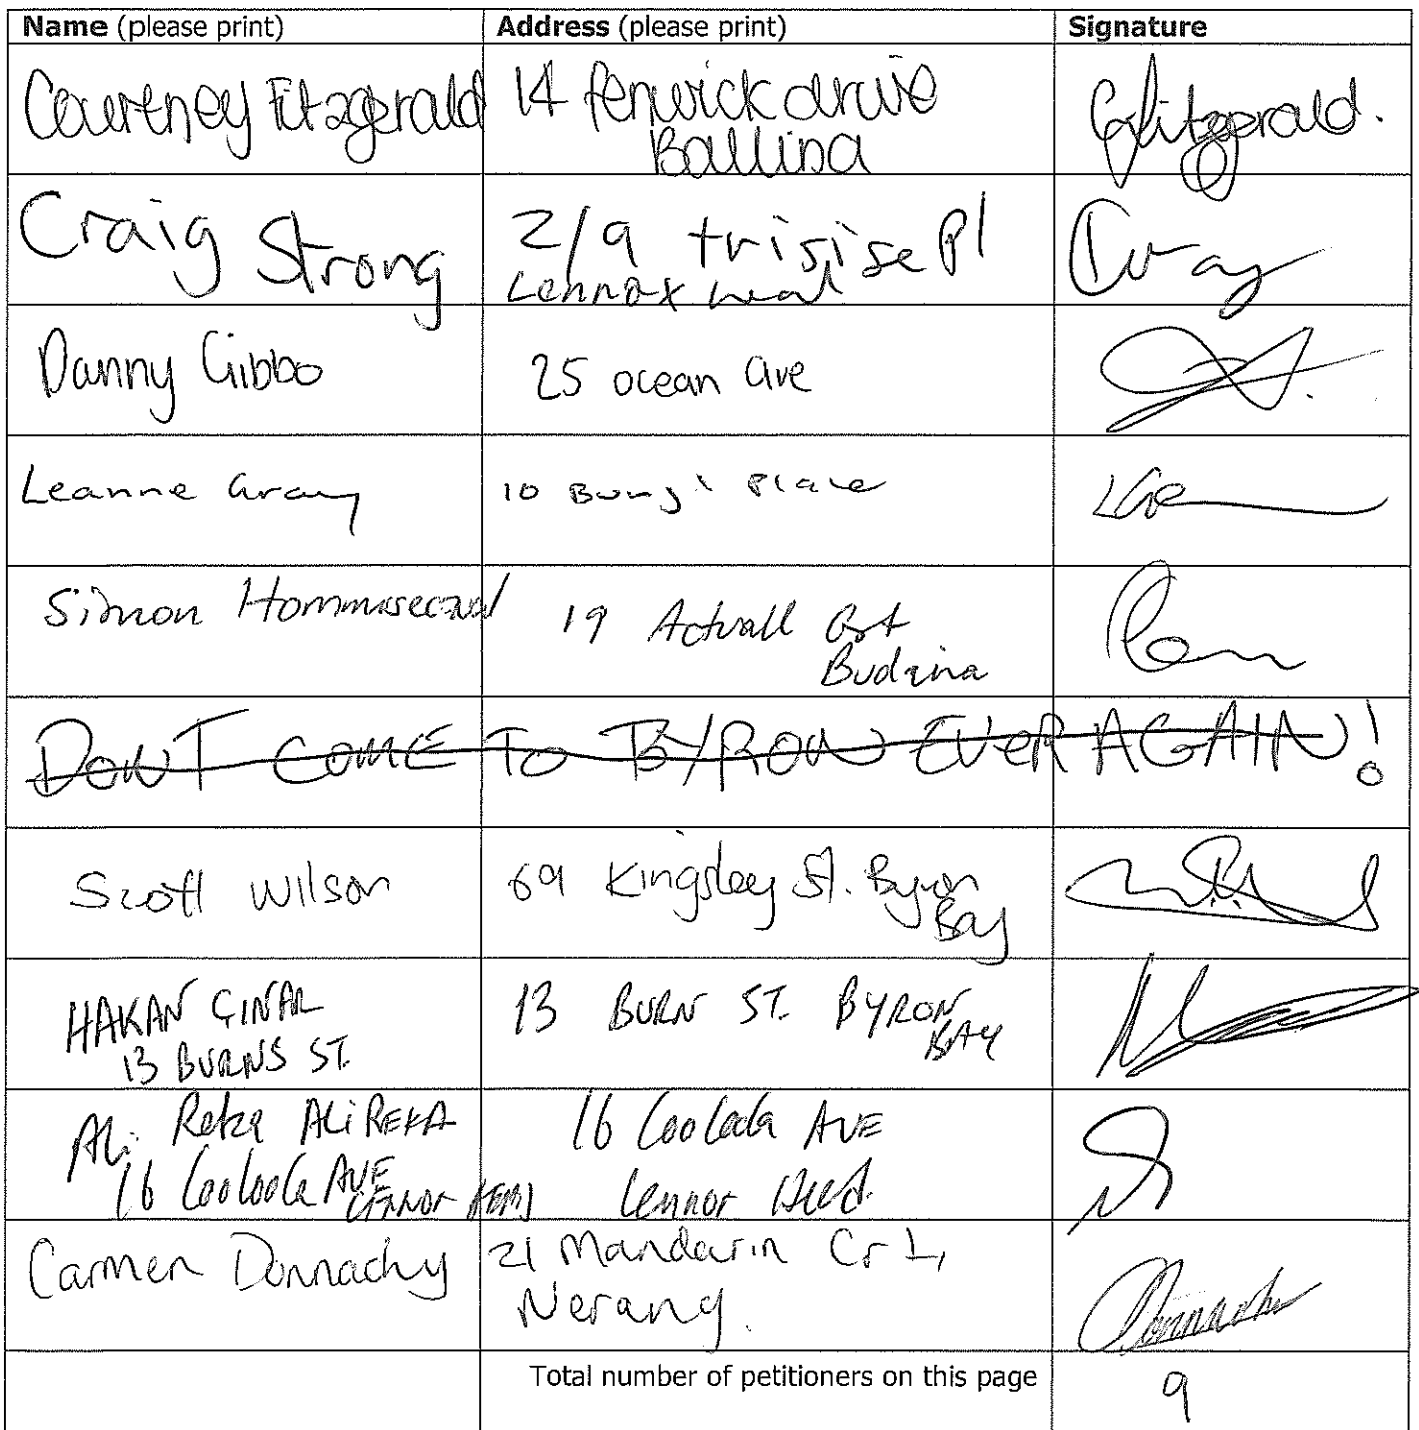 Name (please print) Address (please print) Signature
Courtney Fitzgerald 14 fenwick drive
Ballina
CFitzgerald.
Craig Strong 2/9 trisise Pl
Lennox head
Danny Gibbo 25 ocean ave
Leanne Gray 10 Place
Simon 19
Budzina
DONT COME TO BYRON EVER AGAIN!
Scott Wilson 69 Kingsley St. Byron
Bay
HAKAN ÇINAR
13 BURNS ST.
13 BURN ST. BYRON
BAY
Ali Reka ALi REKA
16 Cooloola AVE
16 Cooloola AVE
Lennor Head
Carmen Donnachy 21 Mandarin Crt,
Nerang.
Total number of petitioners on this page 9